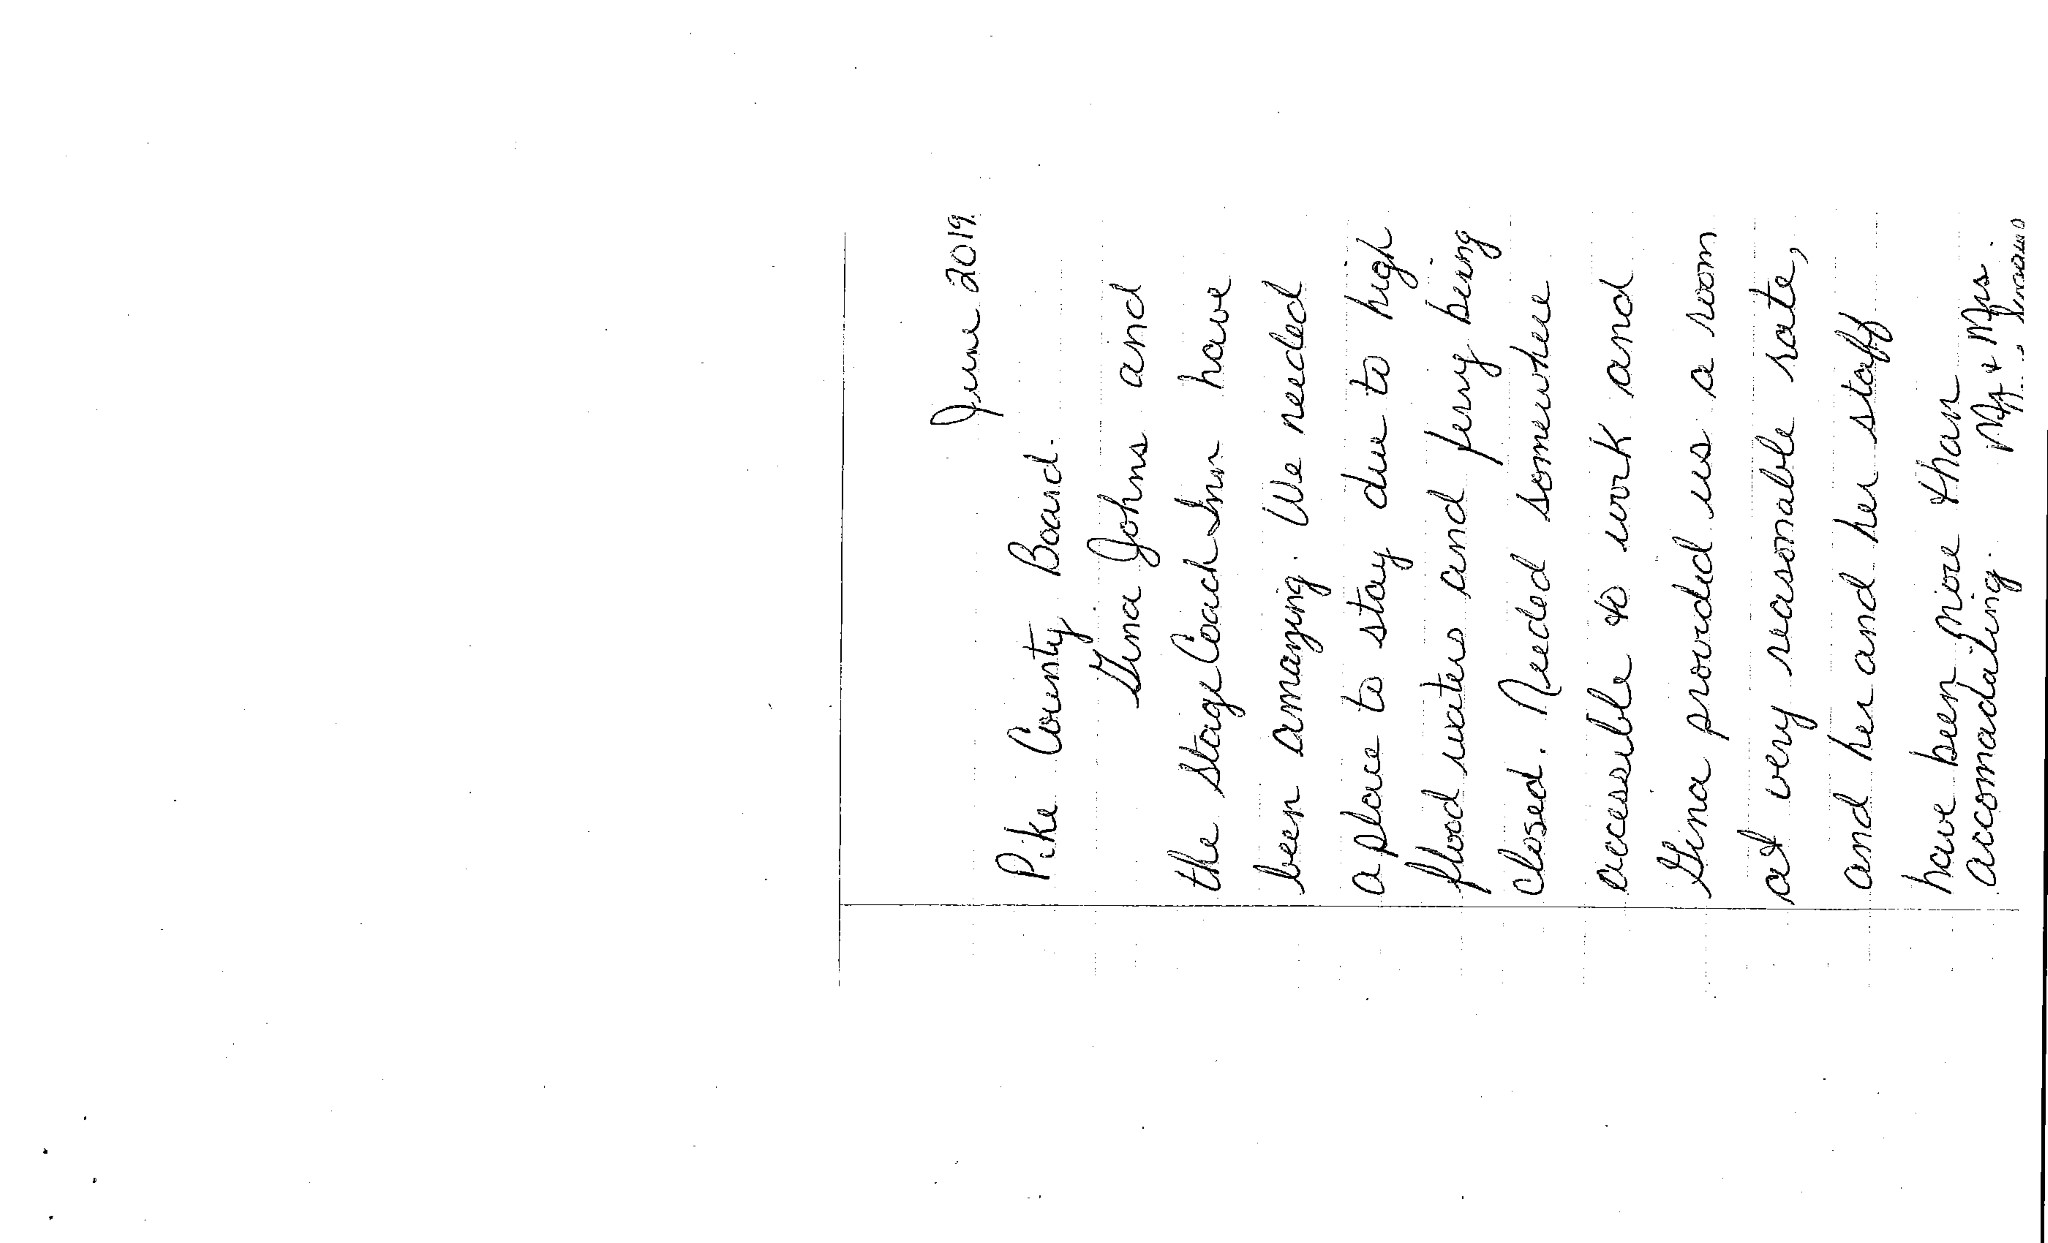 June 2019.
Pike County Board.
Gina Johns and
the Stage Coach Inn have
been amazing. We needed
a place to stay due to high
flood waters and ferry being
closed. Needed somewhere
accessible to work and
Gina provided us a room
at very reasonable rate,
and her and her staff
have been more than
accomadating. Mr & Mrs.